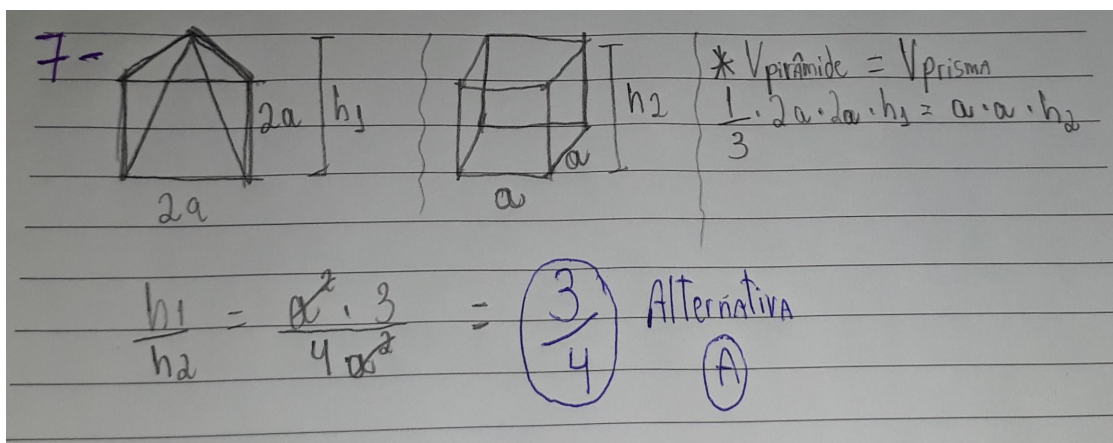 7-
2a h1
2a
h2
a
a
* Vpirâmide = Vprisma
1/3 · 2a · 2a · h1 = a · a · h2
h1/h2 = a² · 3 / 4a² = 3/4 Alternativa
A